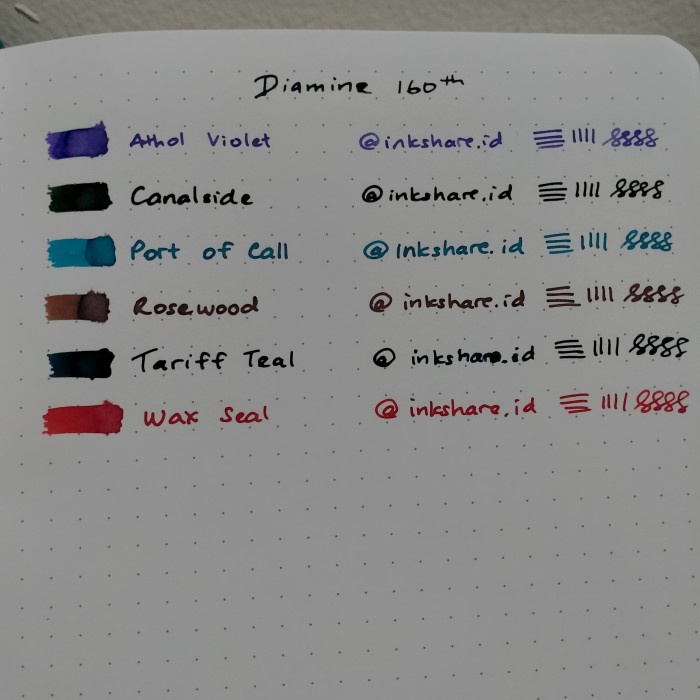 Diamine 160th
Athol Violet @inkshare.id
Canalside @inkshare.id
Port of Call @inkshare.id
Rosewood @inkshare.id
Tariff Teal @inkshare.id
Wax Seal @inkshare.id